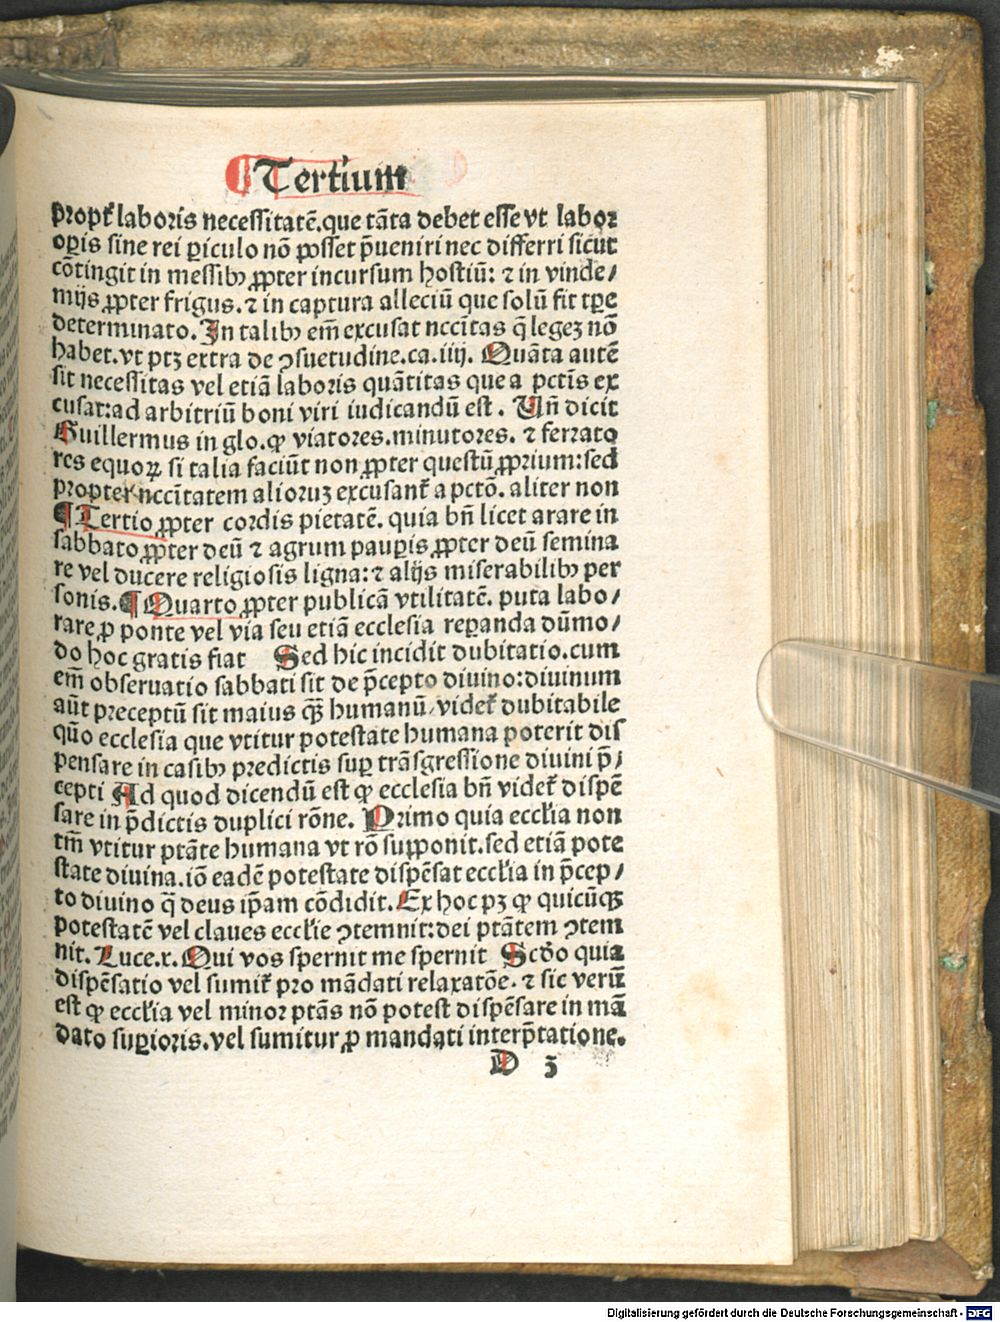 ¶ Tertium
propt᷑ laboris necessitatē. que tāta debet esse vt labor
oꝑis sine rei ꝑiculo nō posset p̄ueniri nec differri sicut
cōtingit in messibꝫ ꝓpter incursum hostiū: ⁊ in vinde/
mijs ꝓpter frigus. ⁊ in captura alleciū que solū fit tꝑe
determinato. In talibꝫ em̄ excusat nccītas q̄ legeꝫ nō
habet. vt ptꝫ extra de ꝯsuetudine. ca. iiij. Quāta autē
sit necessitas vel etiā laboris quātitas que a pctīs ex
cusat: ad arbitriū boni viri iudicandū est. Uñ dicit
Guillermus in glo. ꝙ viatores. minutores. ⁊ ferrato
res equoꝝ si talia faciūt non ꝓpter questū ꝓprium: sed
propter nccītatem alioruꝫ excusant᷑ a pctō. aliter non
¶ Tertio ꝓpter cordis pietatē. quia bn̄ licet arare in
sabbato ꝓpter deū ⁊ agrum pauꝑis ꝓpter deū semina
re vel ducere religiosis ligna: ⁊ alijs miserabilibꝫ per
sonis. ¶ Quarto ꝓpter publicā vtilitatē. puta labo/
rare ꝓ ponte vel via seu etiā ecclesia reꝑanda dūmo/
do hoc gratis fiat Sed hic incidit dubitatio. cum
em̄ obseruatio sabbati sit de p̄cepto diuino: diuinum
aūt preceptū sit maius qꝫ̄ humanū/ videt᷑ dubitabile
qūo ecclesia que vtitur potestate humana poterit dis
pensare in casibꝫ predictis suꝑ trāsgressione diuini p̄/
cepti Ad quod dicendū est ꝙ ecclesia bn̄ videt᷑ dispē
sare in p̄dictis duplici rōne. Primo quia eccłia non
tm̄ vtitur ptāte humana vt rō supponit. sed etiā pote
state diuina. iō eadē potestate dispēsat eccłia in p̄cep/
to diuino q̄ deus ip̄am cōdidit. Ex hoc pꝫ ꝙ quicūqꝫ
potestatē vel claues eccłie ꝯtemnit: dei ptātem ꝯtem
nit. Luce. x. Qui vos spernit me spernit Scd̄o quia
dispēsatio vel sumit᷑ pro mādati relaxatōe. ⁊ sic verū
est ꝙ eccłia vel minor ptās nō potest dispēsare in mā
dato suꝑioris. vel sumitur ꝓ mandati interp̄tatione.
D 3
Digitalisierung gefördert durch die Deutsche Forschungsgemeinschaft - DFG